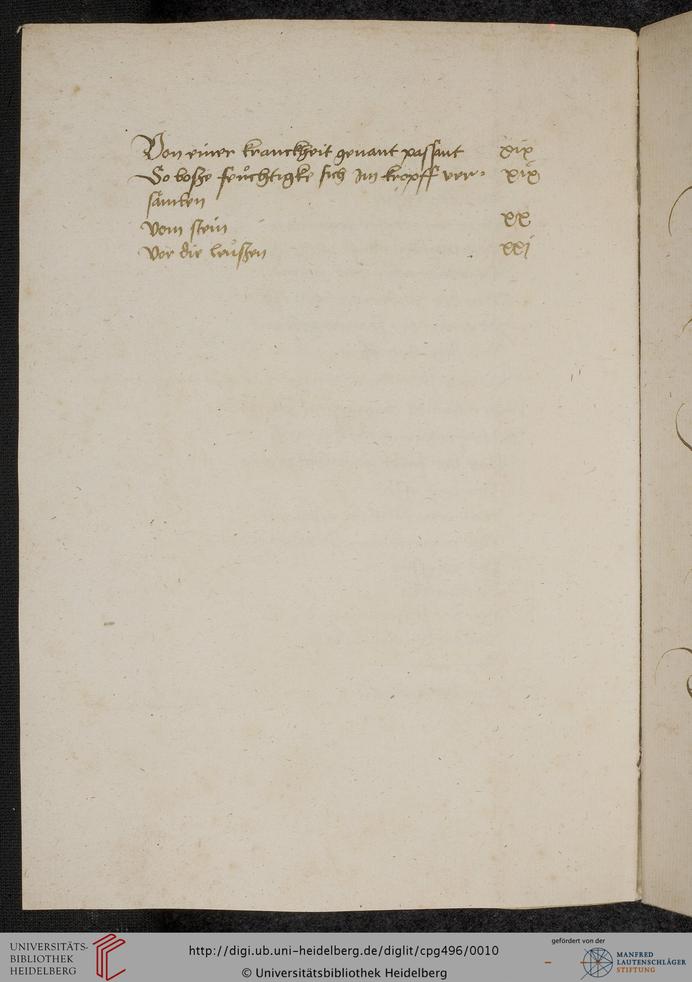 Von einer kranckheit genant passant xix
So boße feuchtigke sich im kropff ver- xix
samlen
Vom stein xx
Vor die leußen xxj
UNIVERSITÄTS-
BIBLIOTHEK
HEIDELBERG
http://digi.ub.uni-heidelberg.de/diglit/cpg496/0010
© Universitätsbibliothek Heidelberg
gefördert von der
MANFRED
LAUTENSCHLÄGER
STIFTUNG